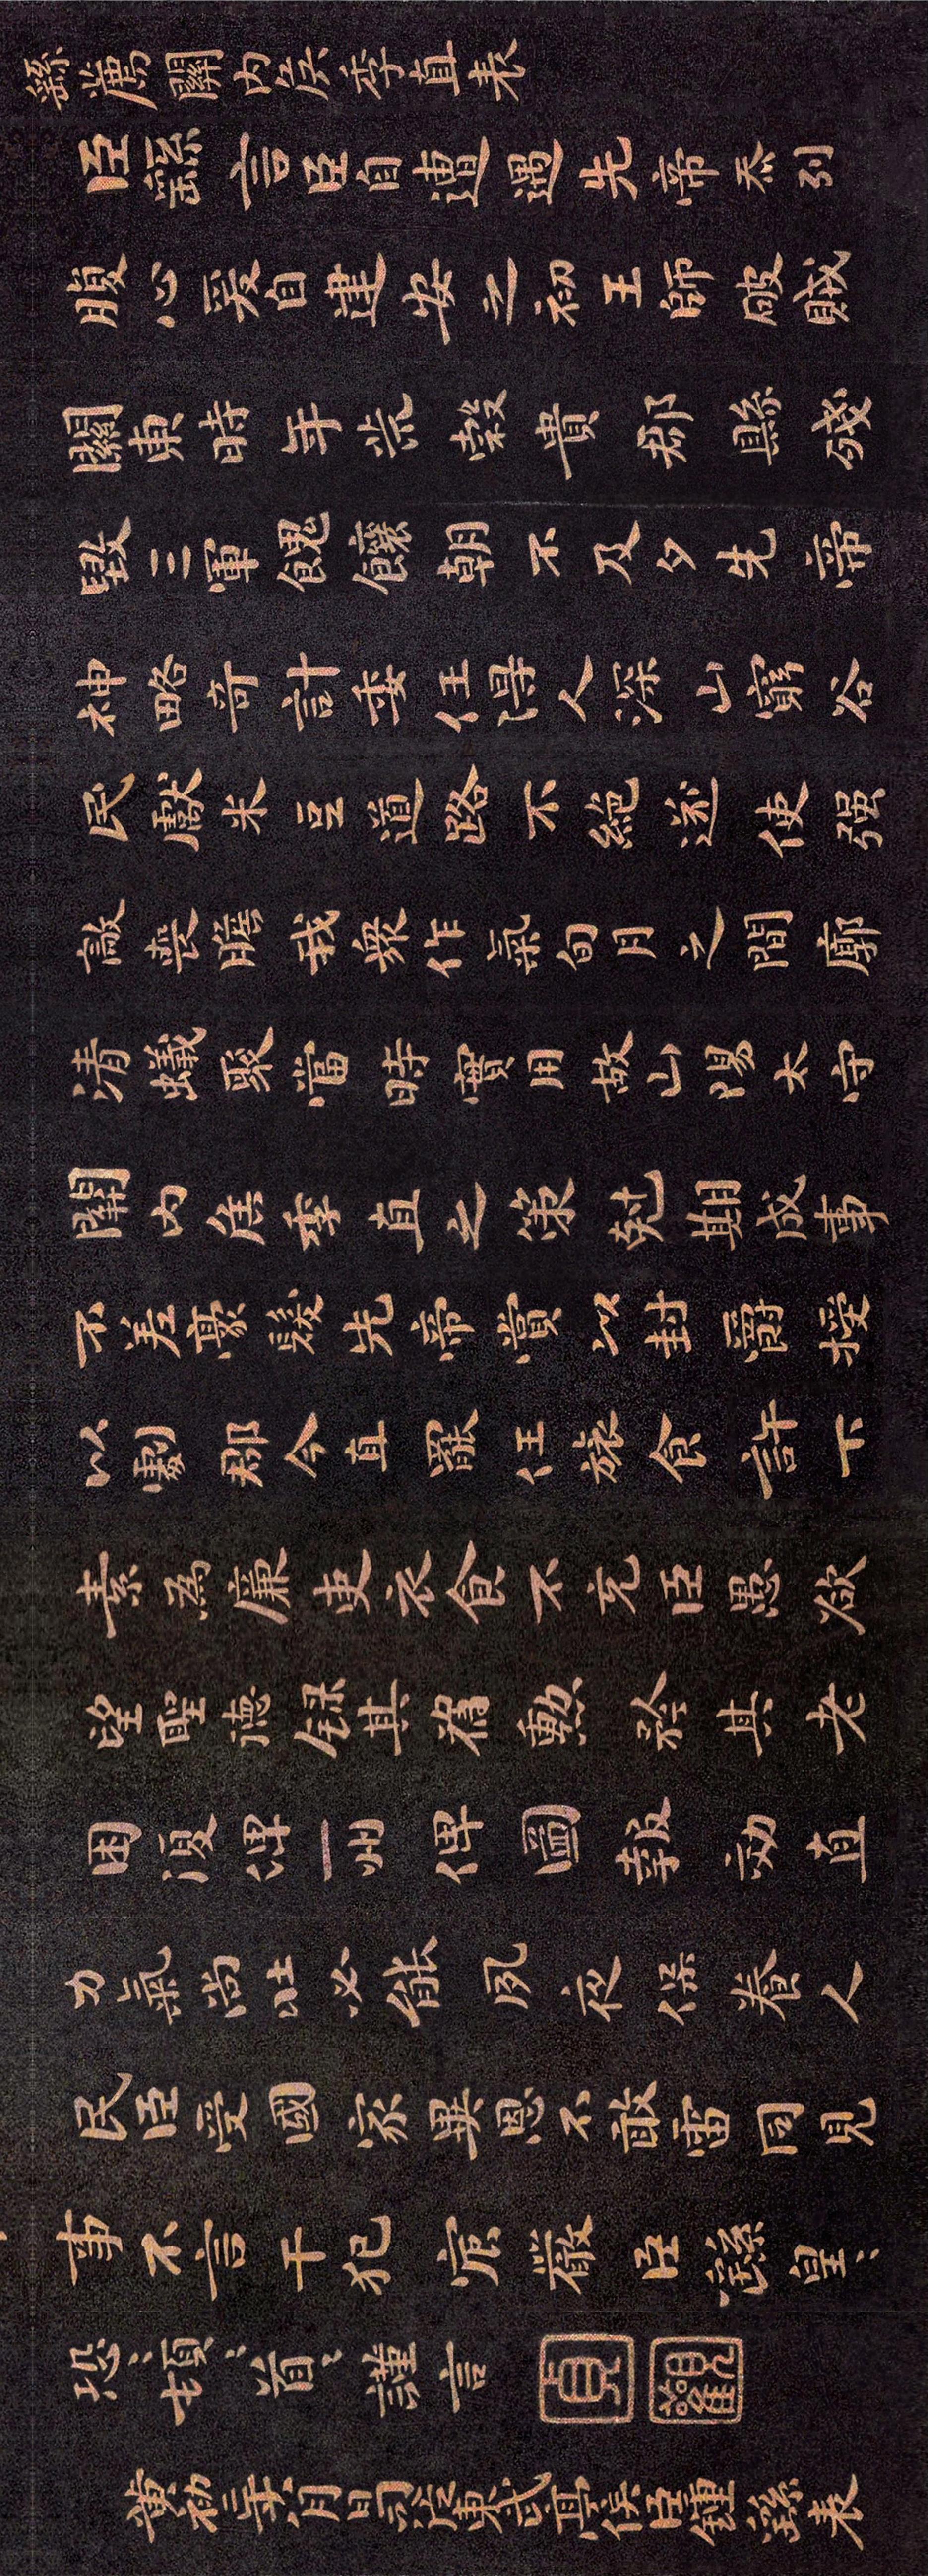 繇薦關內侯季直表
臣繇言臣自遭遇先帝忝列
腹心爰自建安之初王師破賊
關東時年荒穀貴郡縣殘
毀三軍餽饟朝不及夕先帝
神略奇計委任得人深山窮谷
民獻米豆道路不絕遂使強
敵喪膽我衆作氣旬月之間廓
清蟻聚當時實用故山陽太守
關內侯季直之策剋期成事
不差豪髮先帝賞以封爵授
以劇郡今直罷任旅食許下
素為廉吏衣食不充臣愚欲
望聖德錄其舊勳矜其老
困復俾一州俾圖報效直
力氣尚壯必能夙夜保養人
民臣受國家異恩不敢雷同見
事不言干犯宸嚴臣繇皇〻
恐〻頓〻首〻謹言
貞觀
黃初二年八月日司徒東武亭侯臣鍾繇表